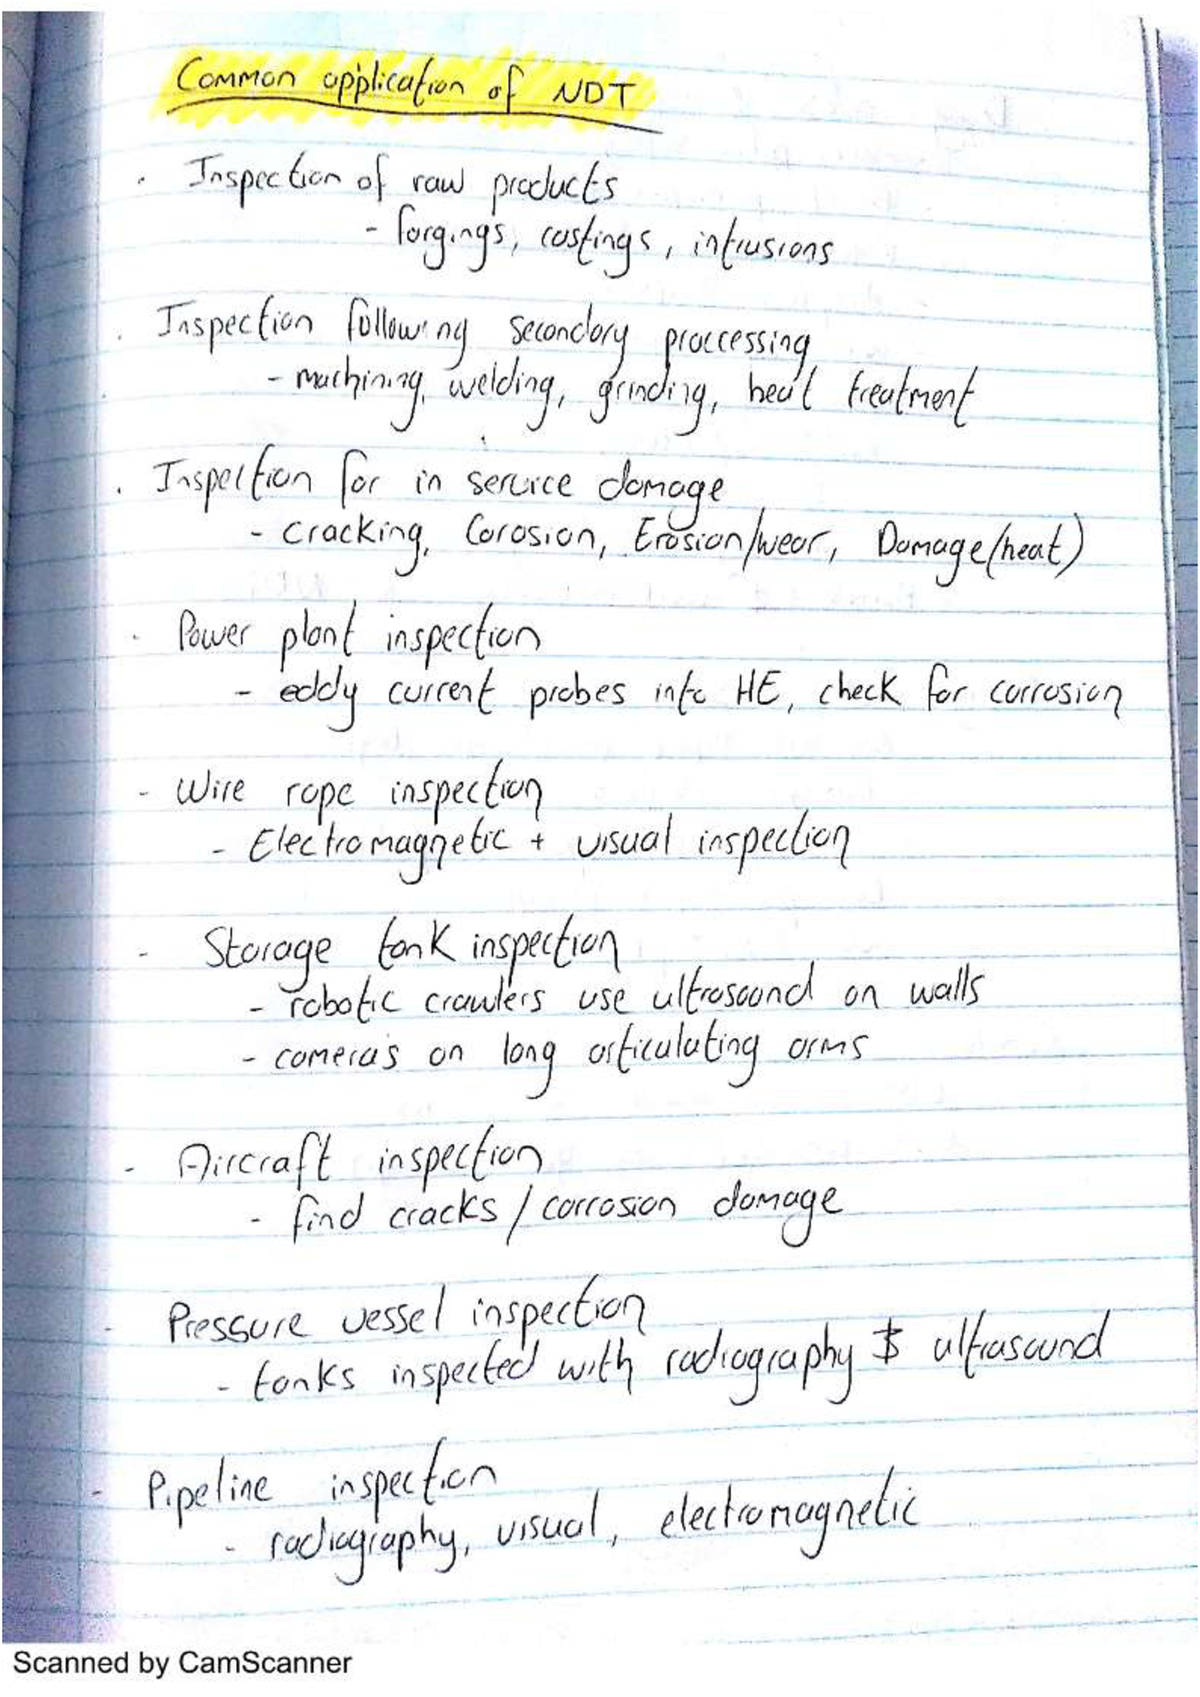 Common application of NDT
. Inspection of raw products
- forgings, castings, intrusions
. Inspection following secondary proccessing
- machining, welding, grinding, heat treatment
. Inspection for in service damage
- cracking, Corosion, Erosion/wear, Damage(heat)
. Power plant inspection
- eddy current probes into HE, check for corrosion
- Wire rope inspection
- Electromagnetic + visual inspection
- Storage tank inspection
- robotic crawlers use ultrasound on walls
- camera's on long articulating arms
- Aircraft inspection
- find cracks / corrosion damage
- Pressure vessel inspection
- tanks inspected with radiography & ultrasound
- Pipeline inspection
- radiography, visual, electromagnetic
Scanned by CamScanner